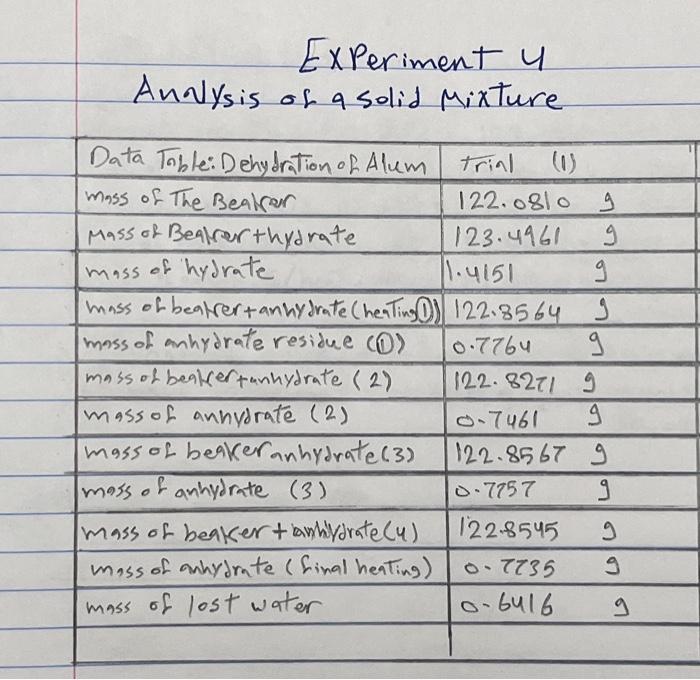 Experiment 4
Analysis of a solid Mixture
Data Table: Dehydration of Alum Trial (1)
mass of The Beaker 122.0810 g
Mass of Beaker + hydrate 123.4961 g
mass of hydrate 1.4151 g
mass of beaker + anhydrate (heating ①) 122.8564 g
mass of anhydrate residue (①) 0.7764 g
mass of beaker + anhydrate (2) 122.8271 g
mass of anhydrate (2) 0.7461 g
mass of beaker anhydrate (3) 122.8567 g
mass of anhydrate (3) 0.7757 g
mass of beaker + anhydrate (4) 122.8545 g
mass of anhydrate (final heating) 0.7735 g
mass of lost water 0.6416 g